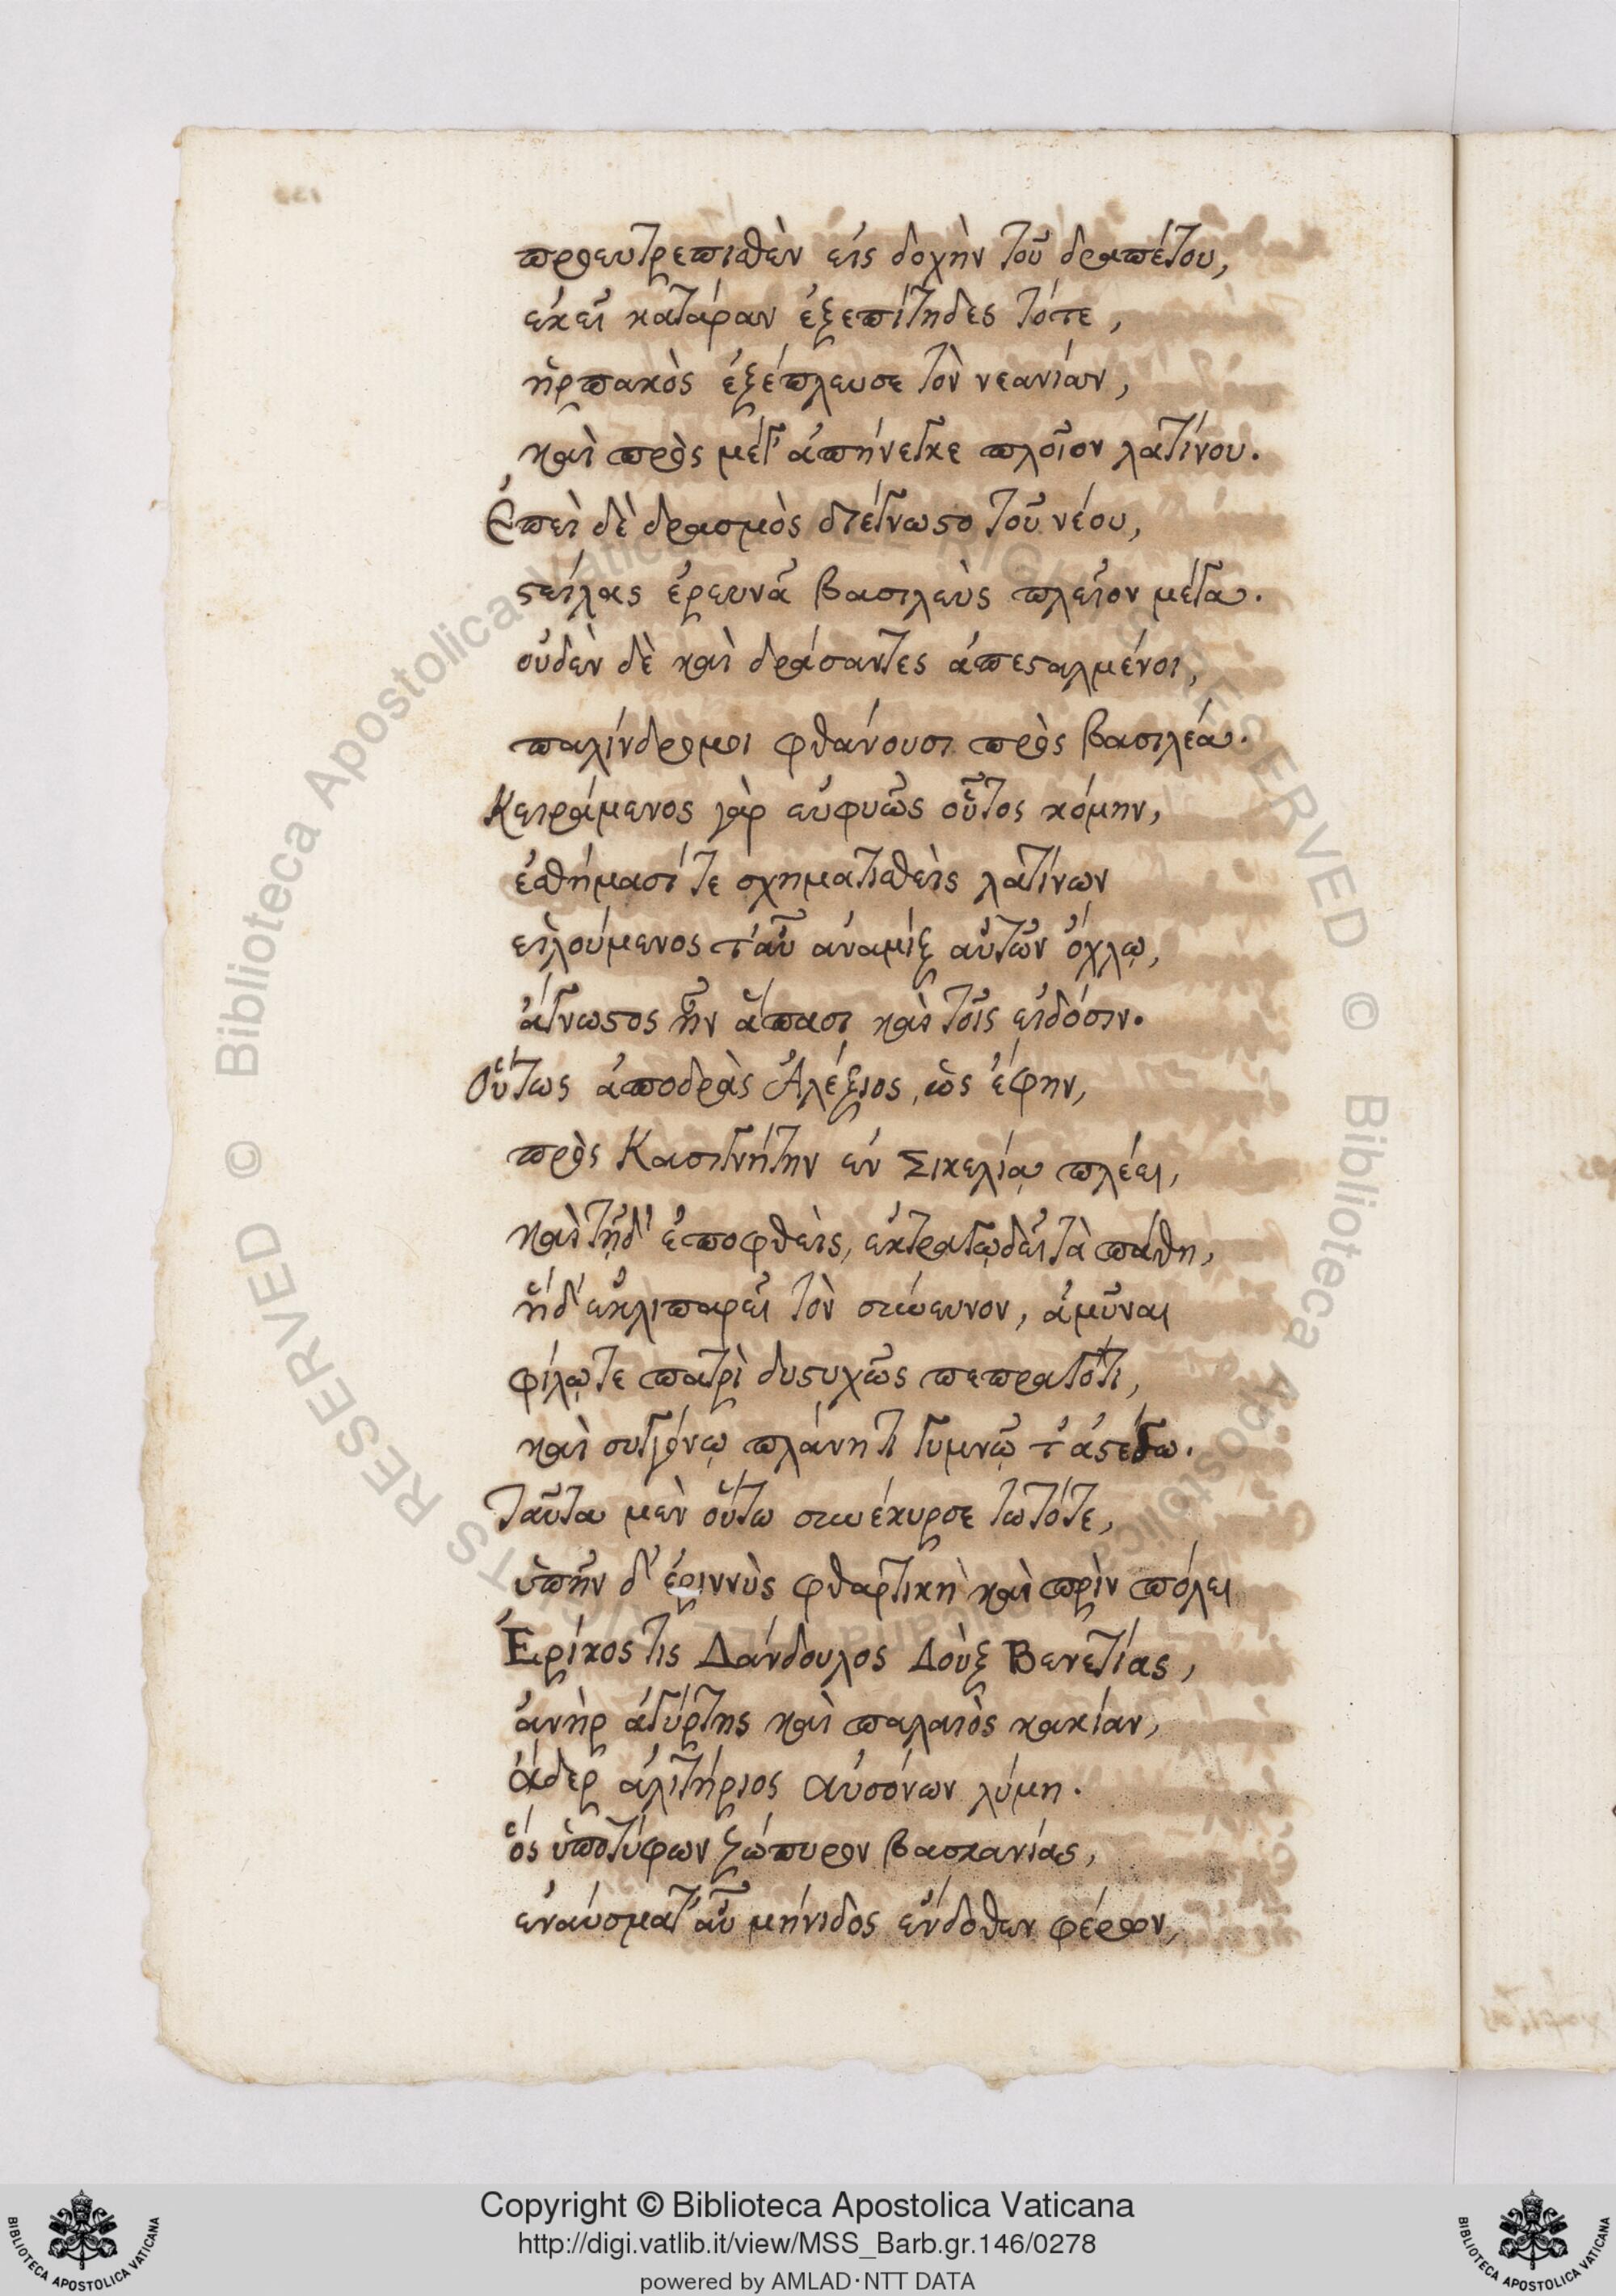 προευτρεπισθὲν εἰς δοχὴν τοῦ δραπέτου,
ἐκεῖ κατάραν ἐξεπίτηδες τότε,
ἡρπακὸς ἐξέπλευσε τὸν νεανίαν,
καὶ πρὸς μέγ' ἀπήνεγκε πλοῖον λατίνου.
Ἐπεὶ δὲ δρασμὸς διέγνωστο τοῦ νέου,
στείλας ἐρευνᾷ βασιλεὺς πλεῖον μέγα.
οὐδὲν δὲ καὶ δράσαντες ἀπεσταλμένοι,
παλίνδρομοι φθάνουσι πρὸς βασιλέα.
Κειράμενος γὰρ εὐφυῶς οὗτος κόμην,
ἐσθήμασί τε σχηματισθεὶς λατίνων
εἰλούμενος τ' αὖ ἀναμὶξ αὐτῶν ὄχλῳ,
ἄγνωστος ἦν ἅπασι καὶ τοῖς εἰδόσιν.
Οὕτως ἀποδρὰς Ἀλέξιος, ὡς ἔφην,
πρὸς Κασιγνήτην ἐν Σικελίᾳ πλέει,
καὶ τῇδ' ἐποφθεὶς, ἐκτραγῳδεῖ τὰ πάθη,
ἥδ' ἐκλιπαρεῖ τὸν σύνευνον, ἀμῦναι
φίλῳ τε πατρὶ δυστυχῶς πεπραγότι,
καὶ συγγόνῳ πλάνητι γυμνῷ τ' ἀστέγῳ.
Ταῦτα μὲν οὕτω συνέκυρσε τωτότε,
ὑπῆν δ' ἐριννὺς φθαρτικὴ καὶ πρὶν πόλει
Ἐρίκος τις Δάνδουλος Δοὺξ Βενετίας,
ἀνὴρ ἀγύρτης καὶ παλαιὸς κακίαν,
ἅδερ ἀλιτήριος αὐσόνων λύμη.
ὃς ὑποτύφων ζώπυρον βασκανίας,
ἐναύσματ' αὖ μήνιδος ἔνδοθεν φέρων,
Copyright © Biblioteca Apostolica Vaticana
http://digi.vatlib.it/view/MSS_Barb.gr.146/0278
powered by AMLAD·NTT DATA